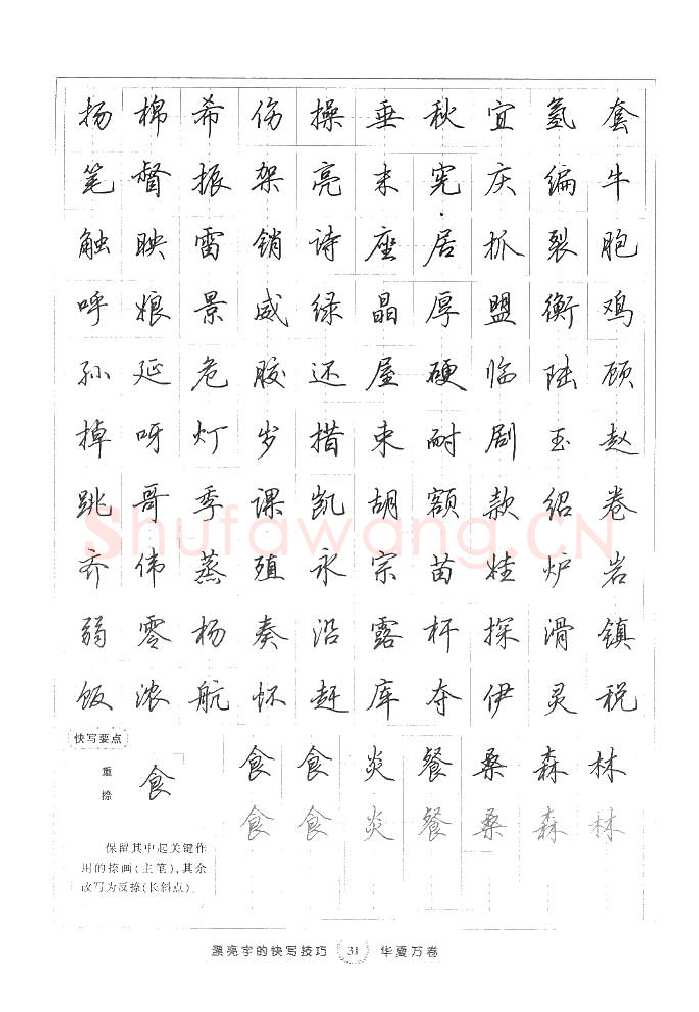 扬 棉 希 伤 操 垂 秋 宜 氢 套
笔 督 振 架 亮 末 宪 庆 编 牛
触 映 雷 销 诗 座 居 抓 裂 胞
呼 娘 景 威 绿 晶 厚 盟 衡 鸡
孙 延 危 胶 还 屋 硬 临 陆 顾
掉 呀 灯 岁 措 束 耐 剧 玉 赵
跳 哥 季 课 凯 胡 额 款 绍 卷
齐 伟 蒸 殖 永 宗 苗 炉 岩
弱 零 杨 奏 沿 露 杆 探 滑 镇
饭 浓 航 怀 赶 库 夺 伊 灵 税
Shufawang.CN
快写要点
重捺
食
食 食 炎 餐 桑 森 林
食 食 炎 餐 桑 森 林
保留其中起关键作
用的捺画(主笔),其余
改写为反捺(长斜点)。
漂亮字的快写技巧 31 华夏万卷